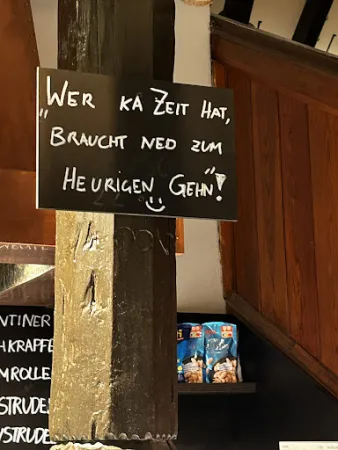 „Wer ka Zeit hat,
braucht ned zum
Heurigen gehn“!
NTINER
HKRAPFE
MROLLE
STRUDE
STRUDE